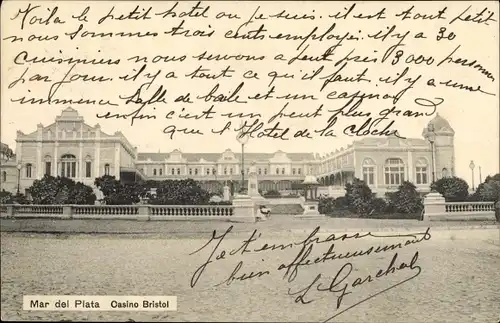 Voila le petit hotel ou je suis. il est tout petit
nous sommes trois cents employé. il y a 30
cuisiniers nous servons a peut près 3000 personnes
par jour. il y a tout ce qu'il faut. il y a une
immence salle de baile et un casino
enfin c'est un peut plus grand
que l'Hotel de la Cloche
Je t'embrasse
bien affectueusement
L Garchal
Mar del Plata Casino Bristol